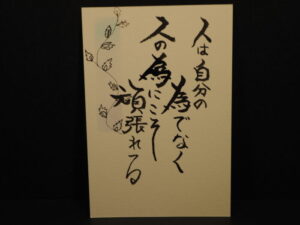 人は自分の
為でなく
人の為にこそ
頑張れてる